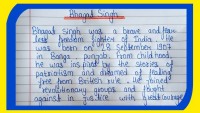 Bhagat Singh
Bhagat singh was a brave and fear
less freedom fighter of India. He
was born on 28 September 1907
in Banga, punjab. From childhood,
he was inspired by the stories of
patriotism and dreamed of
free from British rule. He joined
revolutionary groups and fought
against in justice with great courage